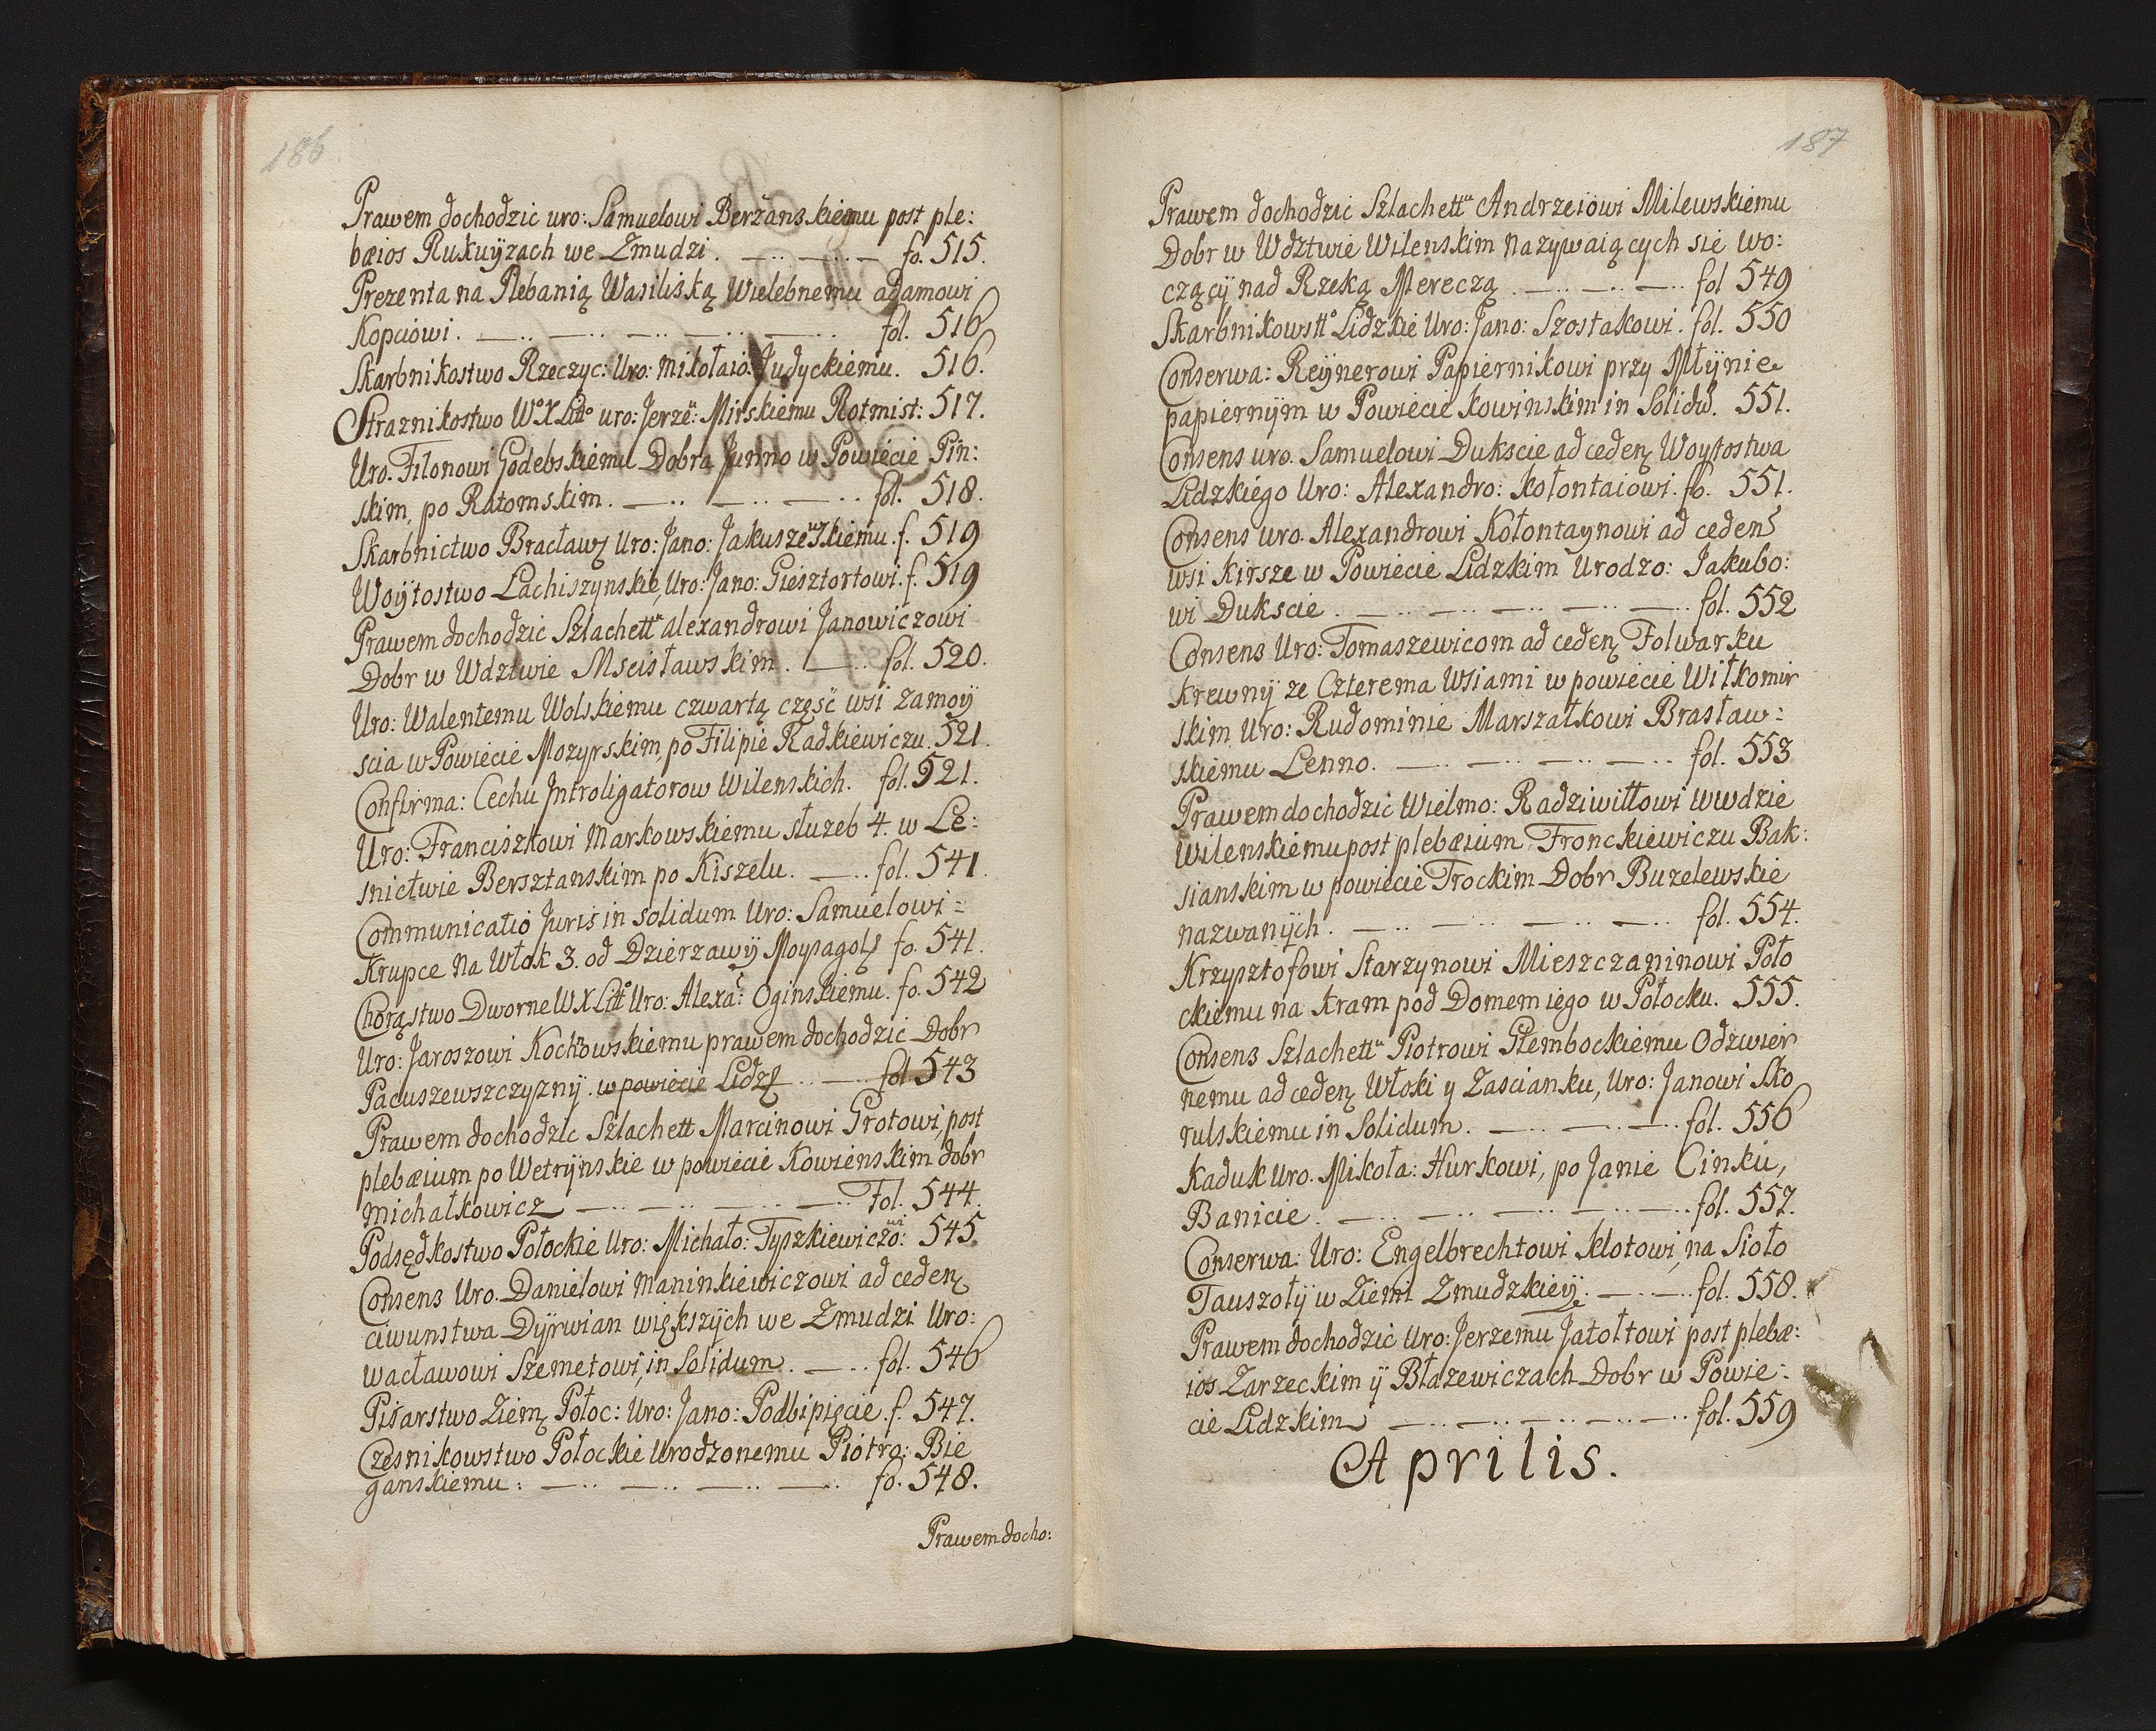 186
Prawem dochodzic uro: Samuelowi Berżanskiemu post ple:
bæios Rukuÿzach we Zmudzi. fo. 515.
Prezenta na Plebanią Wasiliską Wielebnemu adamowi
Kopciowi. fol. 516
Skarbnikostwo Rzeczyc: Uro: Mikołaio: Judyckiemu. 516.
Straznikostwo Wo X Litto uro: Jerze: Mirskiemu Rotmist: 517.
Uro. Filonowi Godebskiemu Dobra Junno w Powiecie Pin:
skim, po Ratomskim. fol. 518.
Skarbnictwo Bracław uro: Jano: Jakuszewskiemu. f. 519
Woÿtostwo Lachiszynskie, Uro: Jano: Giesztortowi. f. 519
Prawem dochodzic Szlachett alexandrowi Janowiczowi
Dobr w Wdztwie Mscisławskim. fol. 520.
Uro: Walentemu Wolskiemu czwartą część wsi zamoÿ
scia w Powiecie Mozyrskim, po Filipie Radkiewiczu. 521.
Confirma: Cechu Introligatorow Wilenskich. fol. 521.
Uro: Franciszkowi Markowskiemu słuzeb 4. w Le:
snictwie Bersztanskim po Kiszelu. fol. 541.
Communicatio Juris in solidum Uro: Samuelowi =
Krupce na Włok 3. od Dzierzawÿ fo. 541.
Chorąstwo Dworne W X Litto Uro: Alexa: Oginskiemu. fo. 542
Uro: Jaroszowi Kochowskiemu prawem dochodzic Dobr
Pacuszewszczyznÿ. w powiecie Lidz fol 543
Prawem dochodzic Szlachett Marcinowi Grotowi, post
plebæium po Wetrÿnskie w powiecie Kowienskim dobr
Michałkowicz Fol. 544.
Podsędkostwo Połockie Uro: Michało: Tyszkiewiczowi: 545.
Consens Uro. Danielowi Maninkiewiczowi ad ceden
ciwunstwa Dÿrwian większÿch we Zmudzi Uro:
wacławowi Szemetowi, in Solidum. fol. 546
Pisarstwo Ziem Połoc: Uro: Jano: Podbipięcie. f. 547.
Czesnikowstwo Połockie Urodzonemu Piotro: Bie
ganskiemu: fo. 548.
Prawem docho:
187
Prawem dochodzic Szlachettu Andrzeiowi Milewskiemu
Dobr w Wdztwie Wilenskim nazywaiących się wo:
czącÿ nad Rzeką Mereczą fol 549
Skarbnikowstto Lidzkie Uro: Jano: Szostakowi. fol. 550
Conserwa: Reÿnerowi Papiernikowi przy Młÿnie
papiernÿm w Powiecie Kowinskim in Solidu. 551.
Consens uro. Samuelowi Dukscie ad ceden Woytostwa
Lidzkiego Uro: Alexandro: Kołontaiowi. fo. 551.
Consens uro. Alexandrowi Kołontaynowi ad ceden
wsi Kirsze w Powiecie Lidzkim Urodzo: Jakubo:
wi Dukscie. fol. 552
Consens Uro: Tomaszewicom ad ceden Folwarku
krewnÿ ze Czterema Wsiami w powiecie Wiłkomir
skim Uro: Rudominie Marszałkowi Brasław:
skiemu Lenno. fol. 553
Prawem dochodzic Wielmo: Radziwiłłowi wwdzie
Wilenskiemu post plebæium Fronckiewiczu Bak:
sianskim w powiecie Trockim Dobr Buzelewskie
nazwanÿch. fol. 554.
Krzysztofowi Starzynowi Mieszczaninowi Poło
ckiemu na Kram pod Domem iego w Połocku. 555.
Consens Szlachettu Piotrowi Głembockiemu Odzwier
nemu ad ceden Włoki y Zascianku, Uro: Janowi Sko
rulskiemu in Solidum. fol. 556
Kaduk Uro. Mikoła: Hurkowi, po Janie Cinku,
Banicie. fol. 557.
Conserwa: Uro: Engelbrechtowi Klotowi, na Sioło
Tauszołÿ w Ziemi Zmudzkieÿ. fol. 558.
Prawem dochodzic Uro: Jerzemu Jatołtowi post plebæ:
ios Zarzeckim ÿ Błazewiczach Dobr w Powie:
cie Lidzkim fol. 559
Aprilis.